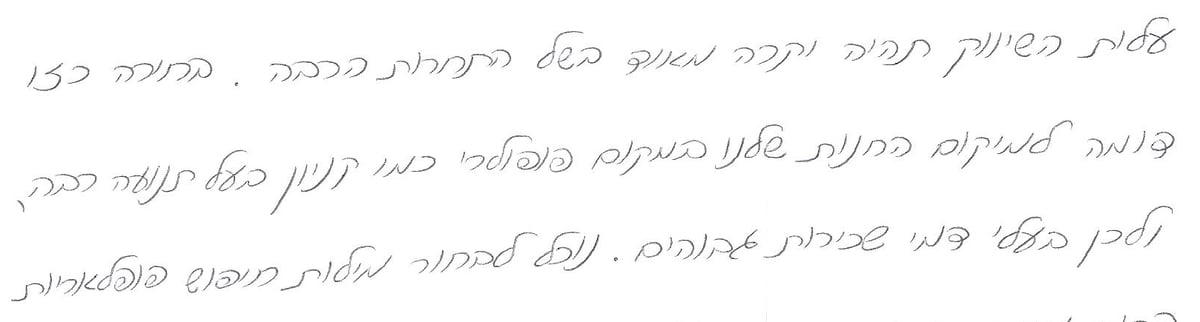 עלות השיווק תהיה יקרה מאוד בשל התחרות הרבה . בחורה כזו
דומה למיקום החנות שלנו במקום פופולרי כמו קניון בעל תנועה רבה,
ולכן בעלי דמי שכירות גבוהים . נוכל לבחור מילות חיפוש פופלאריות